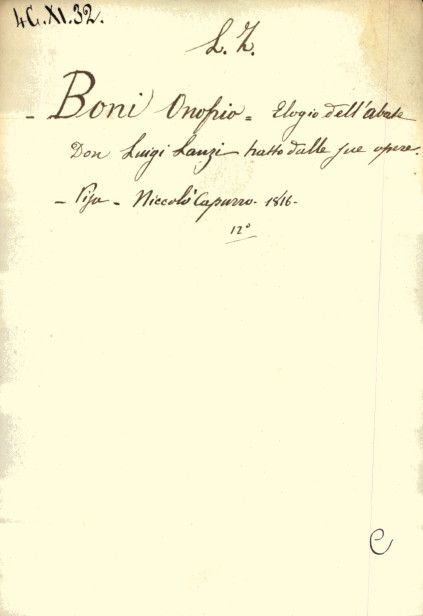 4G.XI.32.
L. Z.
- Boni Onofrio = Elogio dell'abate
Don Luigi Lanzi tratto dalle sue opere.
- Pisa - Niccolò Capurro - 1816 -
12°
C